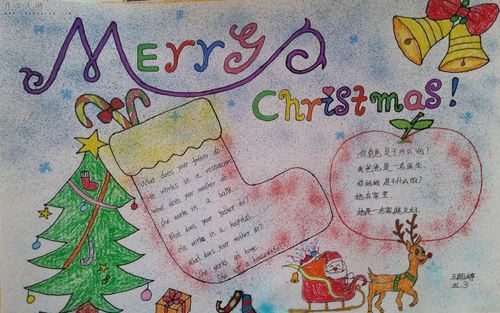 作文人网
Merry
Christmas!
What does your father do?
He works in a restaurant
What does your mother do?
She works in a bank.
What does your father do?
He works in a hospital
What does your mother do?
She works at home
She is a housewife
你爸爸是干什么的?
我爸爸是一名医生.
你妈妈是干什么的?
她在家里.
她是一名家庭主妇
五.3